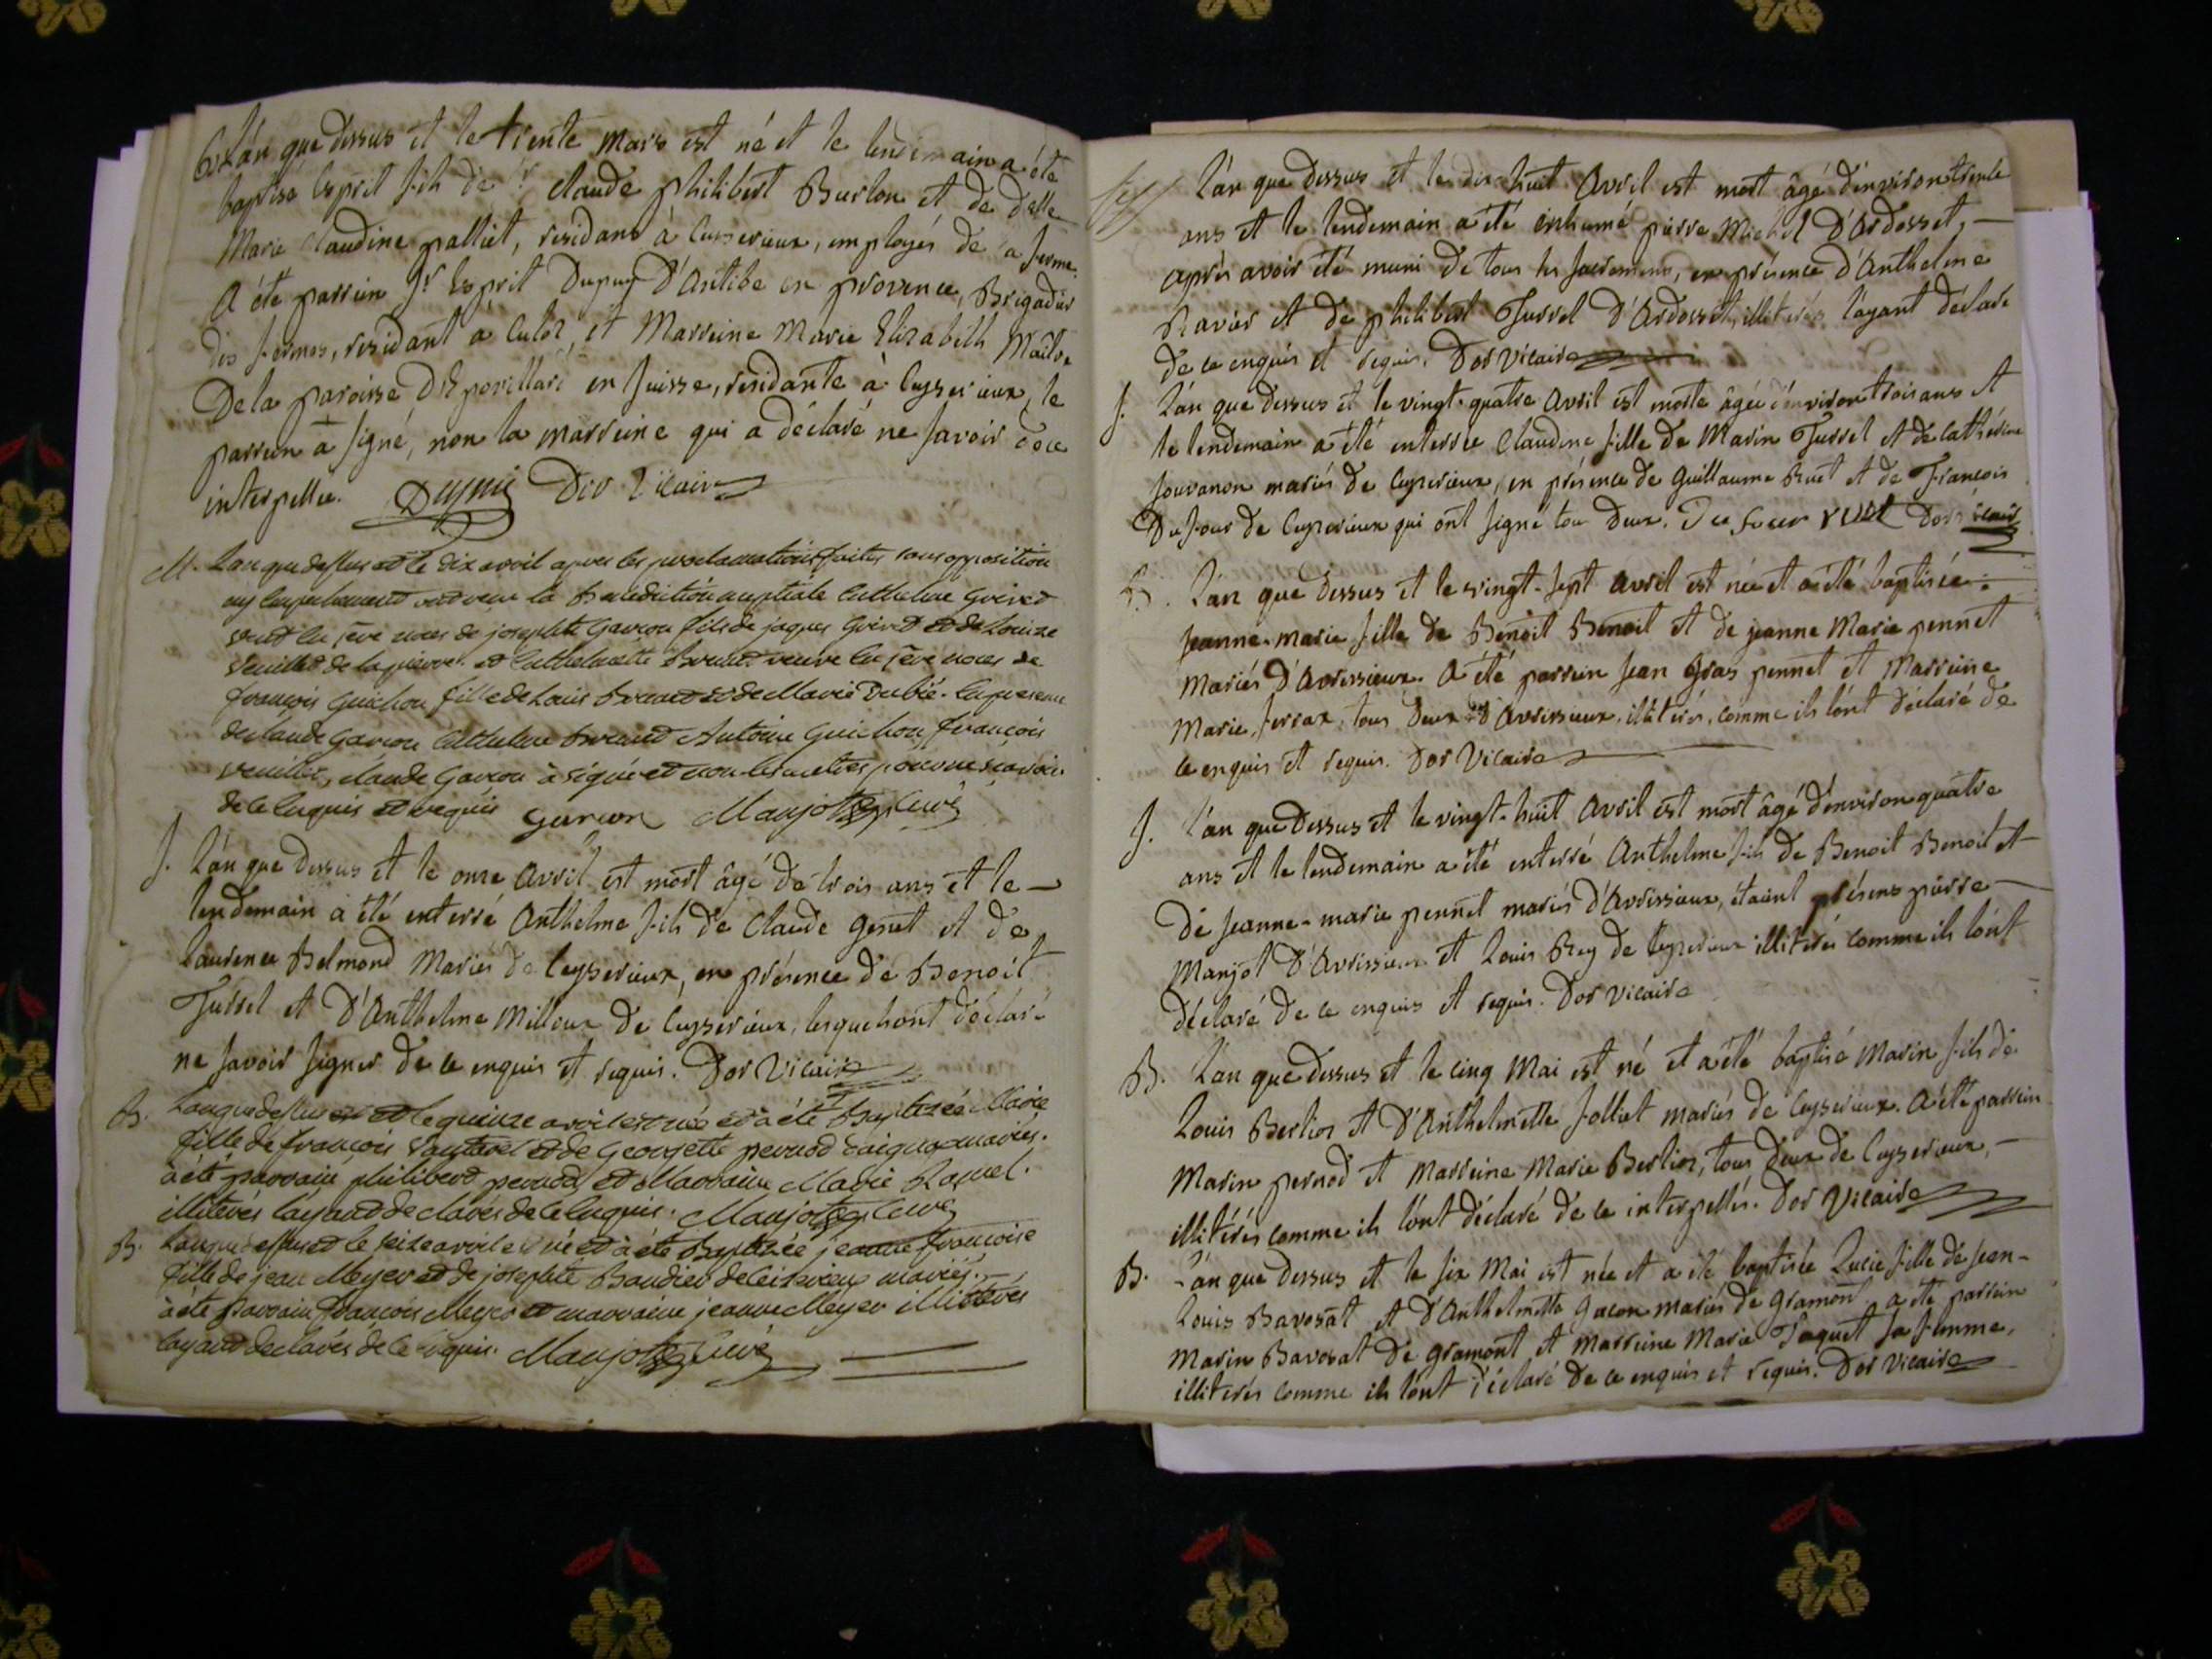 B. L'an que dessus et le trente mars est né et le lendemain a été
baptisé Esprit fils de Sr claude philibert Burlon et de delle
Marie Claudine palliet, residans à Cuyserieux, employés de la ferme.
A été parrein Sr Esprit Dupuy D'Antibe en provence, Brigadier
des fermes, residant à Culoz, et Marreine Marie Elizabeth
De la paroisse en Suisse, residante à Cuyserieux, le
parrein à signé, non la marreine qui a déclaré ne savoir de ce
interpellée. Dupui Dor Vicaire
M. L'an que dessus et le dix avril apres les proclamations faites sans opposition
ny empechement ont reçu la Benediction nuptiale Anthelme Grived
veuf en 1ere noces de josephte Garçon fils de jaques Grived et de Louise
veuillet de lapierre. et Anthelmette Brunet veuve en 1ere noces de
françois Guichon fille de Louis Brunet et de Marie Dubié. En presence
de claude Garçon Anthelme Brunet Antoine Guichon, françois
veuillet, claude Garçon à signé et non les autres pour ne sçavoir.
de ce enquis et requis Garcon Manjot curé
J. L'an que dessus et le onze avril est mort âgé de trois ans et le
lendemain a été enterré Anthelme fils de Claude genet et de
Laurence Belmond Mariés de Cuyserieux, en présence de Benoit
Jussel et D'Anthelme Millour de Cuyserieux, lesquels ont déclaré
ne savoir signer de ce enquis et requis. Dor Vicaire
B. L'an que dessus et le quinze avril est née et à été Baptizée Marie
fille de françois et de Georgette pernod mariés.
à été parrain philiberd pernod et Marraine Marie
illiterés l'ayant declarés de ce Enquis. Manjot Curé
B. L'an que dessus et le seize avril est née et à été Baptizée jeanne françoise
fille de jean Meyer et de josephte Baudier de Ceiserieux mariés.
à été parrain françois Meyer et marraine jeanne Meyer illiterés
l'ayant declarés de ce Enquis. Manjot Curé
L'an que dessus et le dix-huit Avril est mort âgé d'environ trente
ans et le lendemain a été inhumé pierre Michel D'Ardosset,
après avoir été muni de tous les sacremens, en présence d'Anthelme
Ravier et de philibert Jussel D'Ardosset, illiterés l'ayant déclaré
de ce enquis et requis. Dor Vicaire
J. L'an que dessus et le vingt-quatre Avril est morte âgée d'environ trois ans et
le lendemain a été enterrée Claudine fille de Marin Jussel et de Cathérine
Jouvanon mariés de Cuyserieux, en présence de Guillaume Ruet et de François
Dufour de Cuyserieux qui ont signé tou deux. Du four ruet Dor vicaire
B. L'an que dessus et le vingt-sept avril est née et a été baptisée
jeanne-marie fille de Benoit Benoit et de jeanne Marie pennet
mariés D'Avrissieux. A été parrein Jean Gras pennet et Marreine
Marie ferrax, tous deux d'Avrissieux, illitérés, comme ils l'ont déclaré de
ce enquis et requis. Dor Vicaire
J. L'an que dessus et le vingt-huit Avril est mort âgé d'environ quatre
ans et le lendemain a été enterré Anthelme fils de Benoit Benoit et
de Jeanne-marie pennet mariés d'Avrissieux, étaient présens pierre
Manjot D'Avrissieux et Louis Rey de Cuyserieux illiterés comme ils l'ont
déclaré de ce enquis et requis. Dor Vicaire
B. L'an que dessus et le cinq Mai est né et a été baptisé Marin fils de
Louis Berlioz et D'Anthelmette Jolliet mariés de Cuyserieux. A été parrein
Marin pernod et Marreine Marie Berlioz, tous deux de Cuyserieux,
illitérés comme ils l'ont déclaré de ce interpellés. Dor Vicaire
B. L'an que dessus et le six Mai est née et a été baptisée Lucie fille de Jean-
Louis Bavosat et D'Anthelmette Gacon mariés de Gramont a été parrein
Marin Bavosat de Gramont et marreine Marie Jaquet sa femme,
illiterés comme ils l'ont déclaré de ce enquis et requis. Dor Vicaire